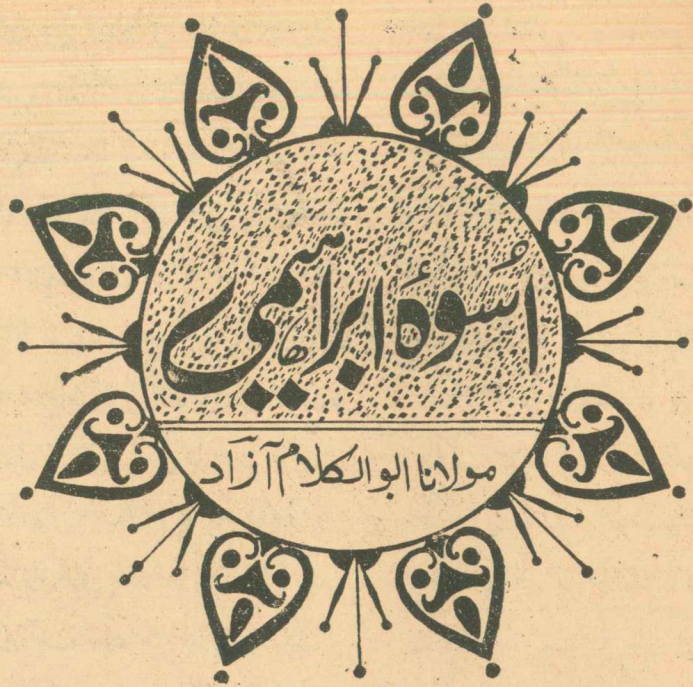 اُسوۂ ابراہیمی
مولانا ابوالکلام آزاد